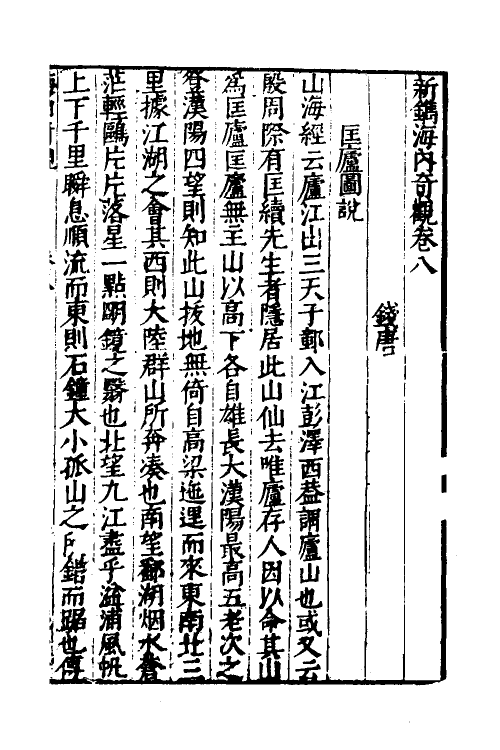 新鐫海內奇觀卷八
錢唐
匡廬圖說
山海經云廬江出三天子鄣入江彭澤西葢謂廬山也或又云
殷周際有匡續先生者隱居此山仙去唯廬存人因以命其山
爲匡廬匡廬無主山以高下各自雄長大漢陽最高五老次之
登漢陽四望則知此山拔地無倚自高梁迤邐而來東南北三
里據江湖之會其西則大陸群山所奔凑也南望鄱湖烟水蒼
茫輕鷗片片落星一點明鏡之翳也北望九江盡乎湓浦風帆
上下千里瞬息順流而東則石鐘大小孤山之所錯而踞也傳